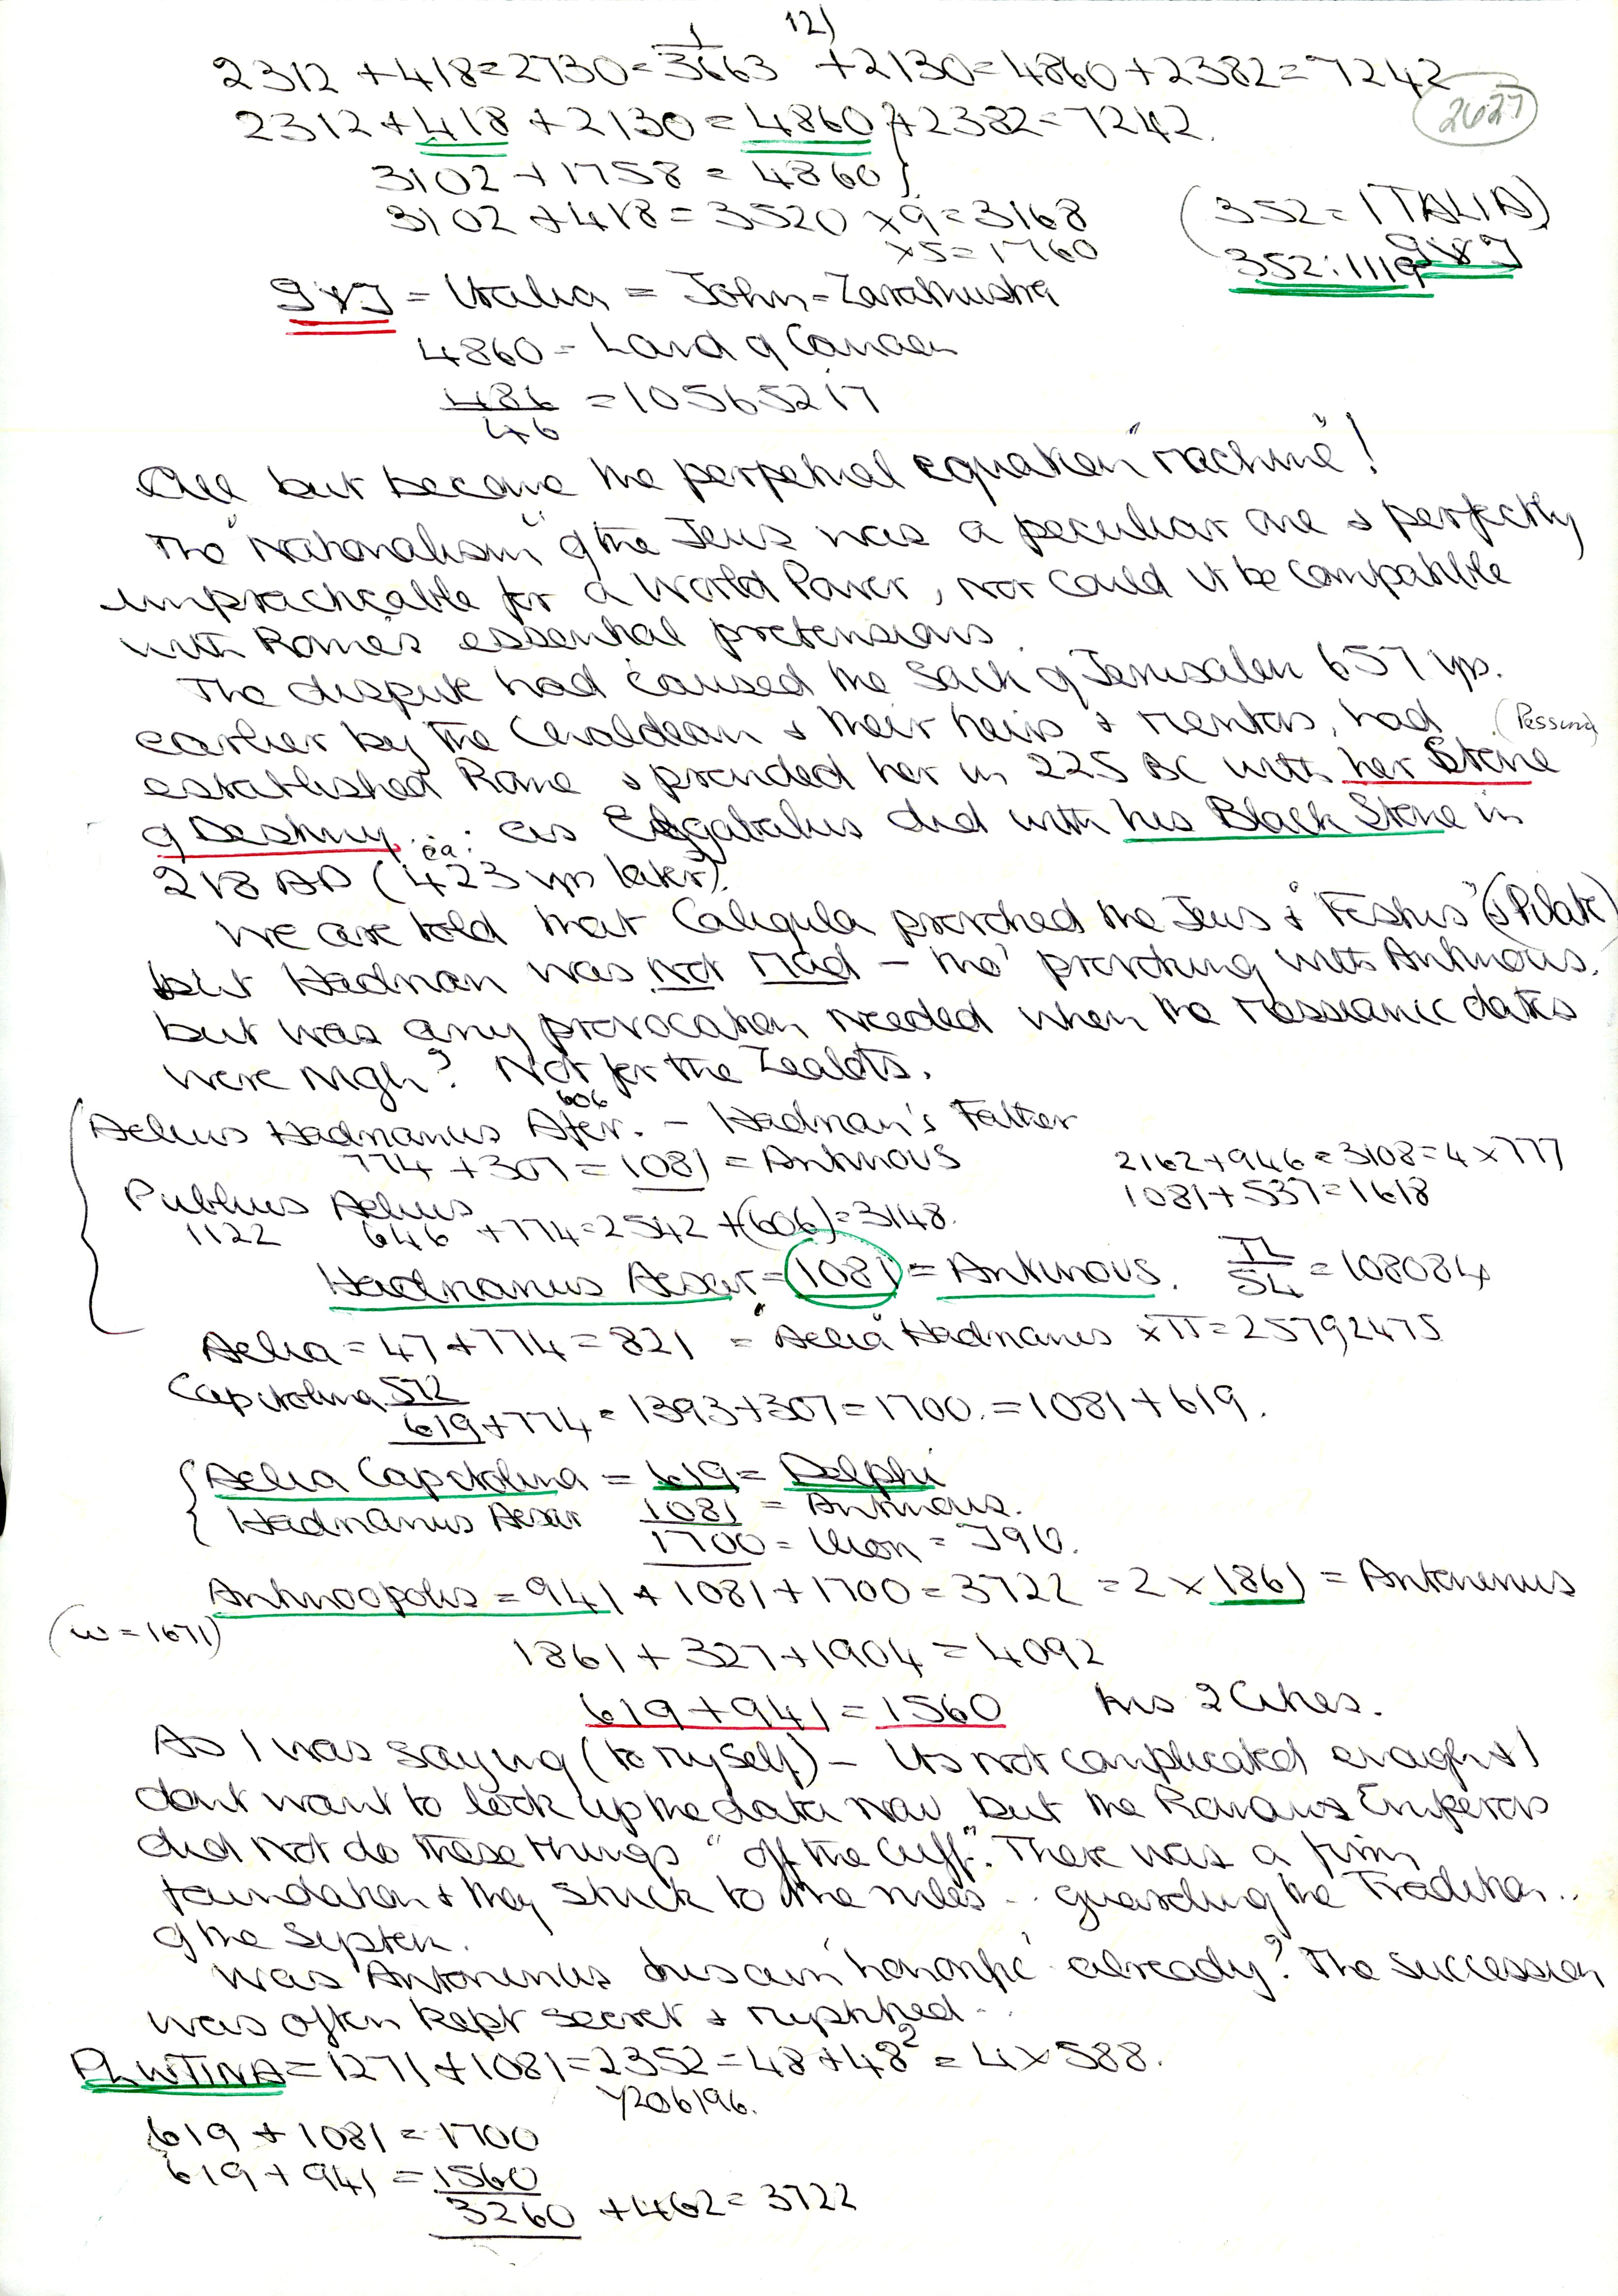 12)
2312 + 418 = 2730 = 1/3663 + 2130 = 4860 + 2382 = 7242
2627
2312 + 418 + 2130 = 4860 } + 2382 = 7242.
3102 + 1758 = 4860 }
3102 + 418 = 3520 × 9 = 3168
× 5 = 1760
(352 = ITALIA)
352 : 1119
= Italia = John = Zarathustra
4860 = Land of Canaan
486/46 = 10565217
All but became the perpetual equation "machine"!
The "Nationalism" of the Jews was a peculiar one & perfectly
impracticable for a World Power, nor could it be compatible
with Rome's essential pretensions.
The dispute had caused the Sack of Jerusalem 657 yrs.
earlier by the Chaldean & their heirs & mentors, had (Pessinus)
established Rome & provided her in 225 BC with her Stone
of Destiny .. : as Elagabalus did with his Black Stone in
218 AD (ca. 423 yrs later).
We are told that Caligula provoked the Jews & "Festus" (& Pilate)
but Hadrian was not mad – tho' provoking with Antinous.
but was any provocation needed when the Messianic dates
were nigh? Not for the Zealots.
606
Aelius Hadrianus Afer. – Hadrian's Father
774 + 307 = 1081 = Antinous
2162 + 946 = 3108 = 4 × 777
1081 + 537 = 1618
Publius Aelius
1122 646 + 774 = 2542 + (606) = 3148.
Hadrianus Aesar = 1081 = Antinous. π/54 = 108084
Aelia = 47 + 774 = 821 = "Aelia" Hadrianus × π = 25792475
Capitolina 572
619 + 774 = 1393 + 307 = 1700. = 1081 + 619.
{ Aelia Capitolina = 619 = Delphi
{ Hadrianus Aesar 1081 = Antinous.
1700 = Ilion =
Antinoopolis = 941 + 1081 + 1700 = 3722 = 2 × 1861 = Antoninus
(w = 1671)
1861 + 327 + 1904 = 4092
619 + 941 = 1560 his 2 Cities.
As I was saying (to myself) – its not complicated enough & I
dont want to look up the data now but the Romans Emperors
did not do these things "off the cuff". There was a firm
foundation & they stuck to the rules .. guarding the Tradition ..
of the System.
Was 'Antoninus' his own 'honorific' already? The succession
was often kept secret & mystified ..
PLWTINA = 1271 + 1081 = 2352 = 48 + 48² = 4 × 588.
√206196.
619 + 1081 = 1700
619 + 941 = 1560
3260 + 462 = 3722